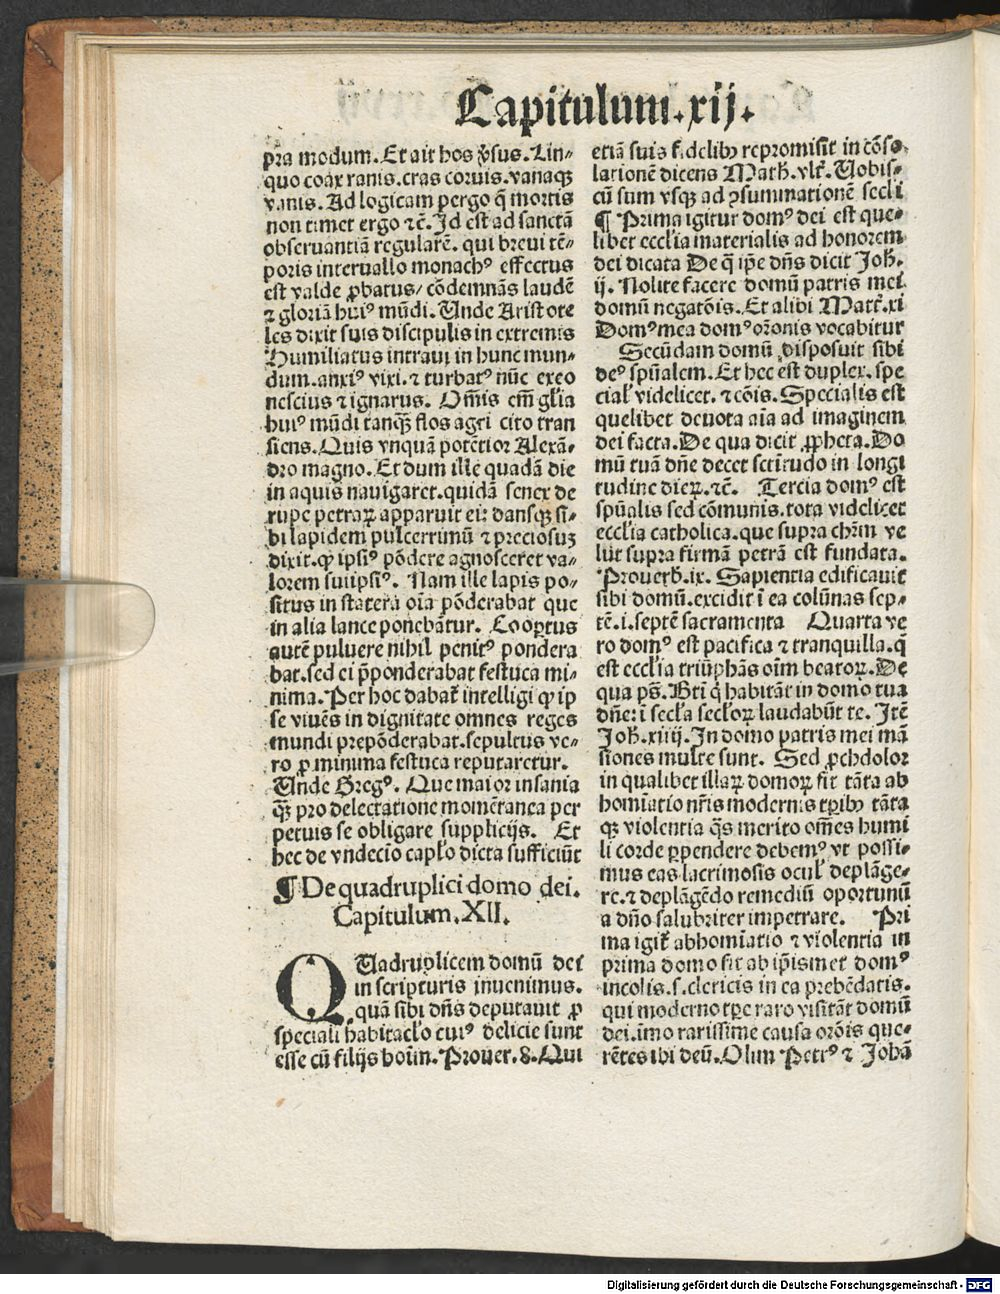 Capitulum.xij.
pra modum. Et ait hos v̓sus. Lin⸗
quo coax ranis. cras coruis. vanaqꝫ
vanis. Ad logicam pergo q̄ mortis
non timet ergo ⁊c̄. Id est ad sanctā
obseruantiā regularē. qui breui tē⸗
poris interuallo monachꝰ effectus
est valde ꝓbatus/ cōdemnās laudē
⁊ gloriā huiꝰ mūdi. Unde Aristote
les dixit suis discipulis in extremis
Humiliatus intraui in hunc mun⸗
dum. anxiꝰ vixi. ⁊ turbatꝰ nūc exeo
nescius ⁊ ignarus. Om̄is em̄ gl̄ia
huiꝰ mūdi tanqꝫ flos agri cito tran
siens. Quis vnquā potētior Alexā⸗
dro magno. Et dum ille quadā die
in aquis nauigaret. quidā senex de
rupe petraꝝ apparuit ei: dansqꝫ si⸗
bi lapidem pulcerrimū ⁊ preciosuꝫ
dixit. ꝙ ipsiꝰ pōdere agnosceret va⸗
lorem suiipsiꝰ. Nam ille lapis po⸗
situs in statera oīa pōderabat que
in alia lance ponebātur. Cooꝑtus
autē puluere nihil penitꝰ pondera
bat. sed ei p̄ponderabat festuca mi⸗
nima. Per hoc dabat̄ intelligi ꝙ ip
se viuēs in dignitate omnes reges
mundi prepōderabat. sepultus ve⸗
ro ꝓ minima festuca reputaretur.
Unde Gregꝰ. Que maior insania
qꝫ̄ pro delectatione momētanea per
petuis se obligare supplicijs. Et
hec de vndecīo cap̄lo dicta sufficiūt
¶ De quadruplici domo dei.
Capitulum. XII.
QUadruplicem domū dei
in scripturis inuenimus.
quā sibi dn̄s deputauit ꝓ
speciali habitac̄lo cuiꝰ delicie sunt
esse cū filijs hoīm. Prouer. 8. Qui
etiā suis fidelibꝫ repromisit in cōso⸗
lationē dicens Math̄. vlt̄. Uobis⸗
cū sum vsqꝫ ad ꝯsummationē secl̄i
¶ Prima igitur domꝰ dei est que⸗
libet eccl̄ia materialis ad honorem
dei dicata De q̄ ip̄e dn̄s dicit Joh̄.
ij. Nolite facere domū patris mei
domū negatōis. Et alibi Matt̄. xi
Domꝰ mea domꝰ or̄onis vocabitur
Secūdam domū disposuit sibi
deꝰ spūalem. Et hec est duplex. spe
cial̄ videlicet. ⁊ cōis. Specialis est
quelibet deuota aīa ad imaginem
dei facta. De qua dicit ꝓpheta. Do
mū tuā dn̄e decet sctītudo in longi
tudine dieꝝ. ⁊c̄. Tercia domꝰ est
spūalis sed cōmunis. tota videlicet
eccl̄ia catholica. que supra chr̄m ve
lut supra firmā petrā est fundata.
Prouerb̄. ix. Sapientia edificauit
sibi domū. excidit ī ea colūnas sep⸗
tē. i. septē sacramenta Quarta ve
ro domꝰ est pacifica ⁊ tranquilla. q̄
est eccl̄ia triūphās oīm beatoꝝ. De
qua pš. Bt̄i q̄ habitāt in domo tua
dn̄e: ī secl̄a secl̄oꝝ laudabūt te. Itē
Joh̄. xiiij. In domo patris mei mā
siones multe sunt. Sed ꝓchdolor
in qualibet illaꝝ domoꝝ fit tāta ab
homīatio nr̄is modernis tꝑibꝫ tāta
qꝫ violentia qd̄ merito om̄es humi
li corde ꝑpendere debemꝰ vt possi⸗
mus eas lacrimosis ocul̄ deplāge⸗
re. ⁊ deplāgēdo remediū oportunū
a dn̄o salubriter impetrare. Pri
ma igit̄ abhomīatio ⁊ violentia in
prima domo fit ab ip̄ismet domꝰ
incolis. s. clericis in ea prebēdatis.
qui moderno tꝑe raro visitāt domū
dei. imo rarissime causa or̄ois que⸗
rētes ibi deū. Olim Petrꝰ ⁊ Johā
Digitalisierung gefördert durch die Deutsche Forschungsgemeinschaft - DFG